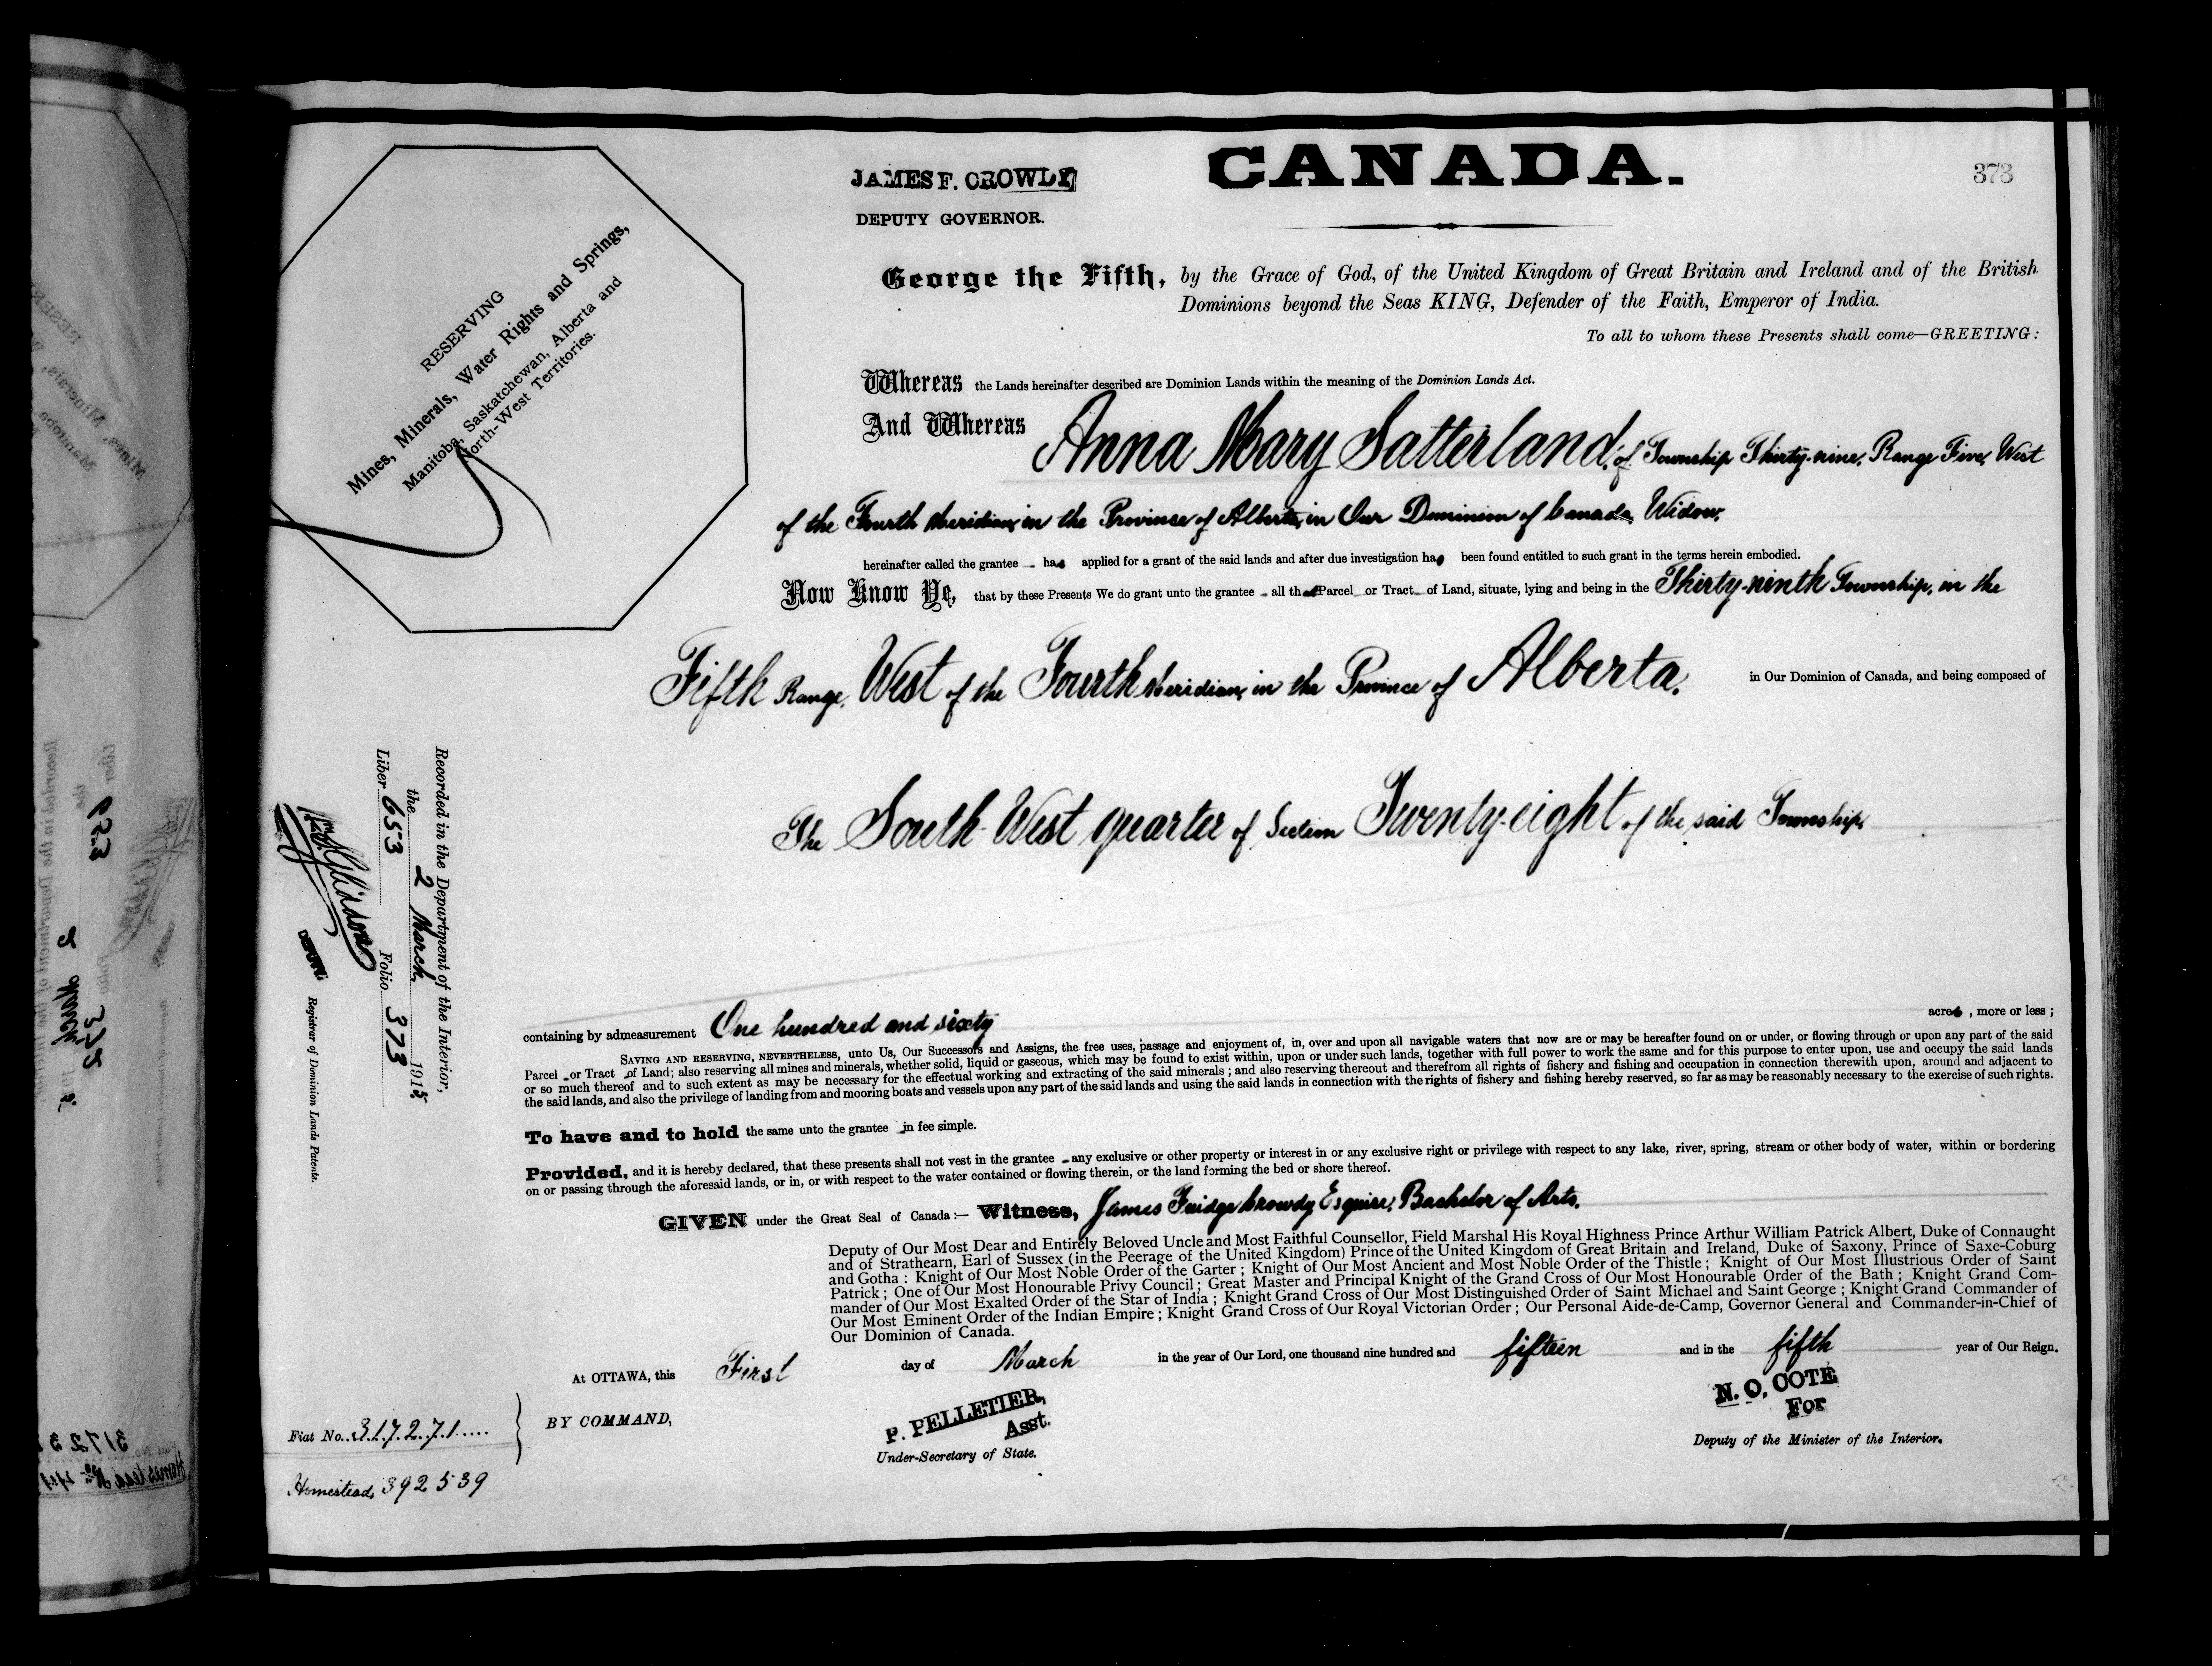 CANADA.
373
JAMES F. CROWDY
DEPUTY GOVERNOR.
RESERVING
Mines, Minerals, Water Rights and Springs,
Manitoba, Saskatchewan, Alberta and
North-West Territories.
George the Fifth, by the Grace of God, of the United Kingdom of Great Britain and Ireland and of the British
Dominions beyond the Seas KING, Defender of the Faith, Emperor of India.
To all to whom these Presents shall come—GREETING:
Whereas the Lands hereinafter described are Dominion Lands within the meaning of the Dominion Lands Act.
And Whereas Anna Mary Satterland, of Township Thirty-nine, Range Five, West
of the Fourth Meridian, in the Province of Alberta, in Our Dominion of Canada, Widow,
hereinafter called the grantee has applied for a grant of the said lands and after due investigation has been found entitled to such grant in the terms herein embodied.
Now Know Ye, that by these Presents We do grant unto the grantee all that Parcel or Tract of Land, situate, lying and being in the Thirty-ninth Township, in the
Fifth Range, West of the Fourth Meridian, in the Province of Alberta, in Our Dominion of Canada, and being composed of
The South West quarter of Section Twenty-eight of the said Township,
containing by admeasurement One hundred and sixty acres, more or less;
SAVING AND RESERVING, NEVERTHELESS, unto Us, Our Successors and Assigns, the free uses, passage and enjoyment of, in, over and upon all navigable waters that now are or may be hereafter found on or under, or flowing through or upon any part of the said
Parcel or Tract of Land; also reserving all mines and minerals, whether solid, liquid or gaseous, which may be found to exist within, upon or under such lands, together with full power to work the same and for this purpose to enter upon, use and occupy the said lands
or so much thereof and to such extent as may be necessary for the effectual working and extracting of the said minerals; and also reserving thereout and therefrom all rights of fishery and fishing and occupation in connection therewith upon, around and adjacent to
the said lands, and also the privilege of landing from and mooring boats and vessels upon any part of the said lands and using the said lands in connection with the rights of fishery and fishing hereby reserved, so far as may be reasonably necessary to the exercise of such rights.
To have and to hold the same unto the grantee in fee simple.
Provided, and it is hereby declared, that these presents shall not vest in the grantee any exclusive or other property or interest in or any exclusive right or privilege with respect to any lake, river, spring, stream or other body of water, within or bordering
on or passing through the aforesaid lands, or in, or with respect to the water contained or flowing therein, or the land forming the bed or shore thereof.
GIVEN under the Great Seal of Canada:— Witness, James Fuidge Crowdy Esquire, Bachelor of Arts,
Deputy of Our Most Dear and Entirely Beloved Uncle and Most Faithful Counsellor, Field Marshal His Royal Highness Prince Arthur William Patrick Albert, Duke of Connaught
and of Strathearn, Earl of Sussex (in the Peerage of the United Kingdom) Prince of the United Kingdom of Great Britain and Ireland, Duke of Saxony, Prince of Saxe-Coburg
and Gotha: Knight of Our Most Noble Order of the Garter; Knight of Our Most Ancient and Most Noble Order of the Thistle; Knight of Our Most Illustrious Order of Saint
Patrick; One of Our Most Honourable Privy Council; Great Master and Principal Knight of the Grand Cross of Our Most Honourable Order of the Bath; Knight Grand Com-
mander of Our Most Exalted Order of the Star of India; Knight Grand Cross of Our Most Distinguished Order of Saint Michael and Saint George; Knight Grand Commander of
Our Most Eminent Order of the Indian Empire; Knight Grand Cross of Our Royal Victorian Order; Our Personal Aide-de-Camp, Governor General and Commander-in-Chief of
Our Dominion of Canada.
At OTTAWA, this First day of March in the year of Our Lord, one thousand nine hundred and fifteen and in the fifth year of Our Reign.
BY COMMAND,
P. PELLETIER,
Asst.
Under-Secretary of State.
N. O. COTE
For
Deputy of the Minister of the Interior.
Fiat No. 317271
Homestead 392539
Recorded in the Department of the Interior,
the 2 March 1915
Liber 653 Folio 373
DEPUTY
Registrar of Dominion Lands Patents.